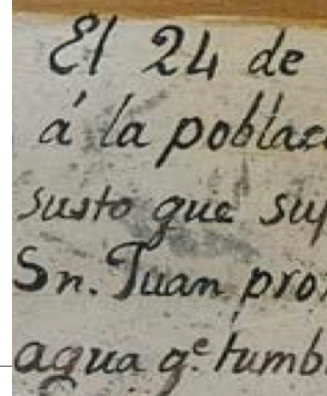 El 24 de
á la poblac
susto que suf
Sn. Juan pro
agua q.e tumb